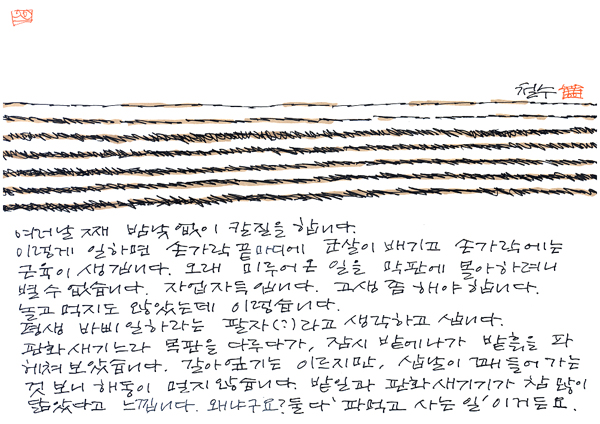 철수
여러날 째 밤낮없이 칼질을 합니다.
이렇게 일하면 손가락 끝마디에 굳살이 배기고 손가락에는
근육이 생깁니다. 오래 미루어 온 일을 막판에 몰아하려니
별 수 없습니다. 자업자득입니다. 고생 좀 해야 합니다.
놀고 먹지도 않았는데 이렇습니다.
평생 바삐 일하라는 팔자(?)라고 생각하고 삽니다.
판화 새기느라 목판을 다루다가, 잠시 밭에 나가 밭흙을 파
헤쳐 보았습니다. 갈아엎기는 이르지만, 삽날이 깨들어가는
것 보니 해동이 멀지 않습니다. 밭일과 판화새기기가 참 많이
닮았다고 느낍니다. 왜냐구요? 둘 다 '파먹고 사는 일' 이거든요.